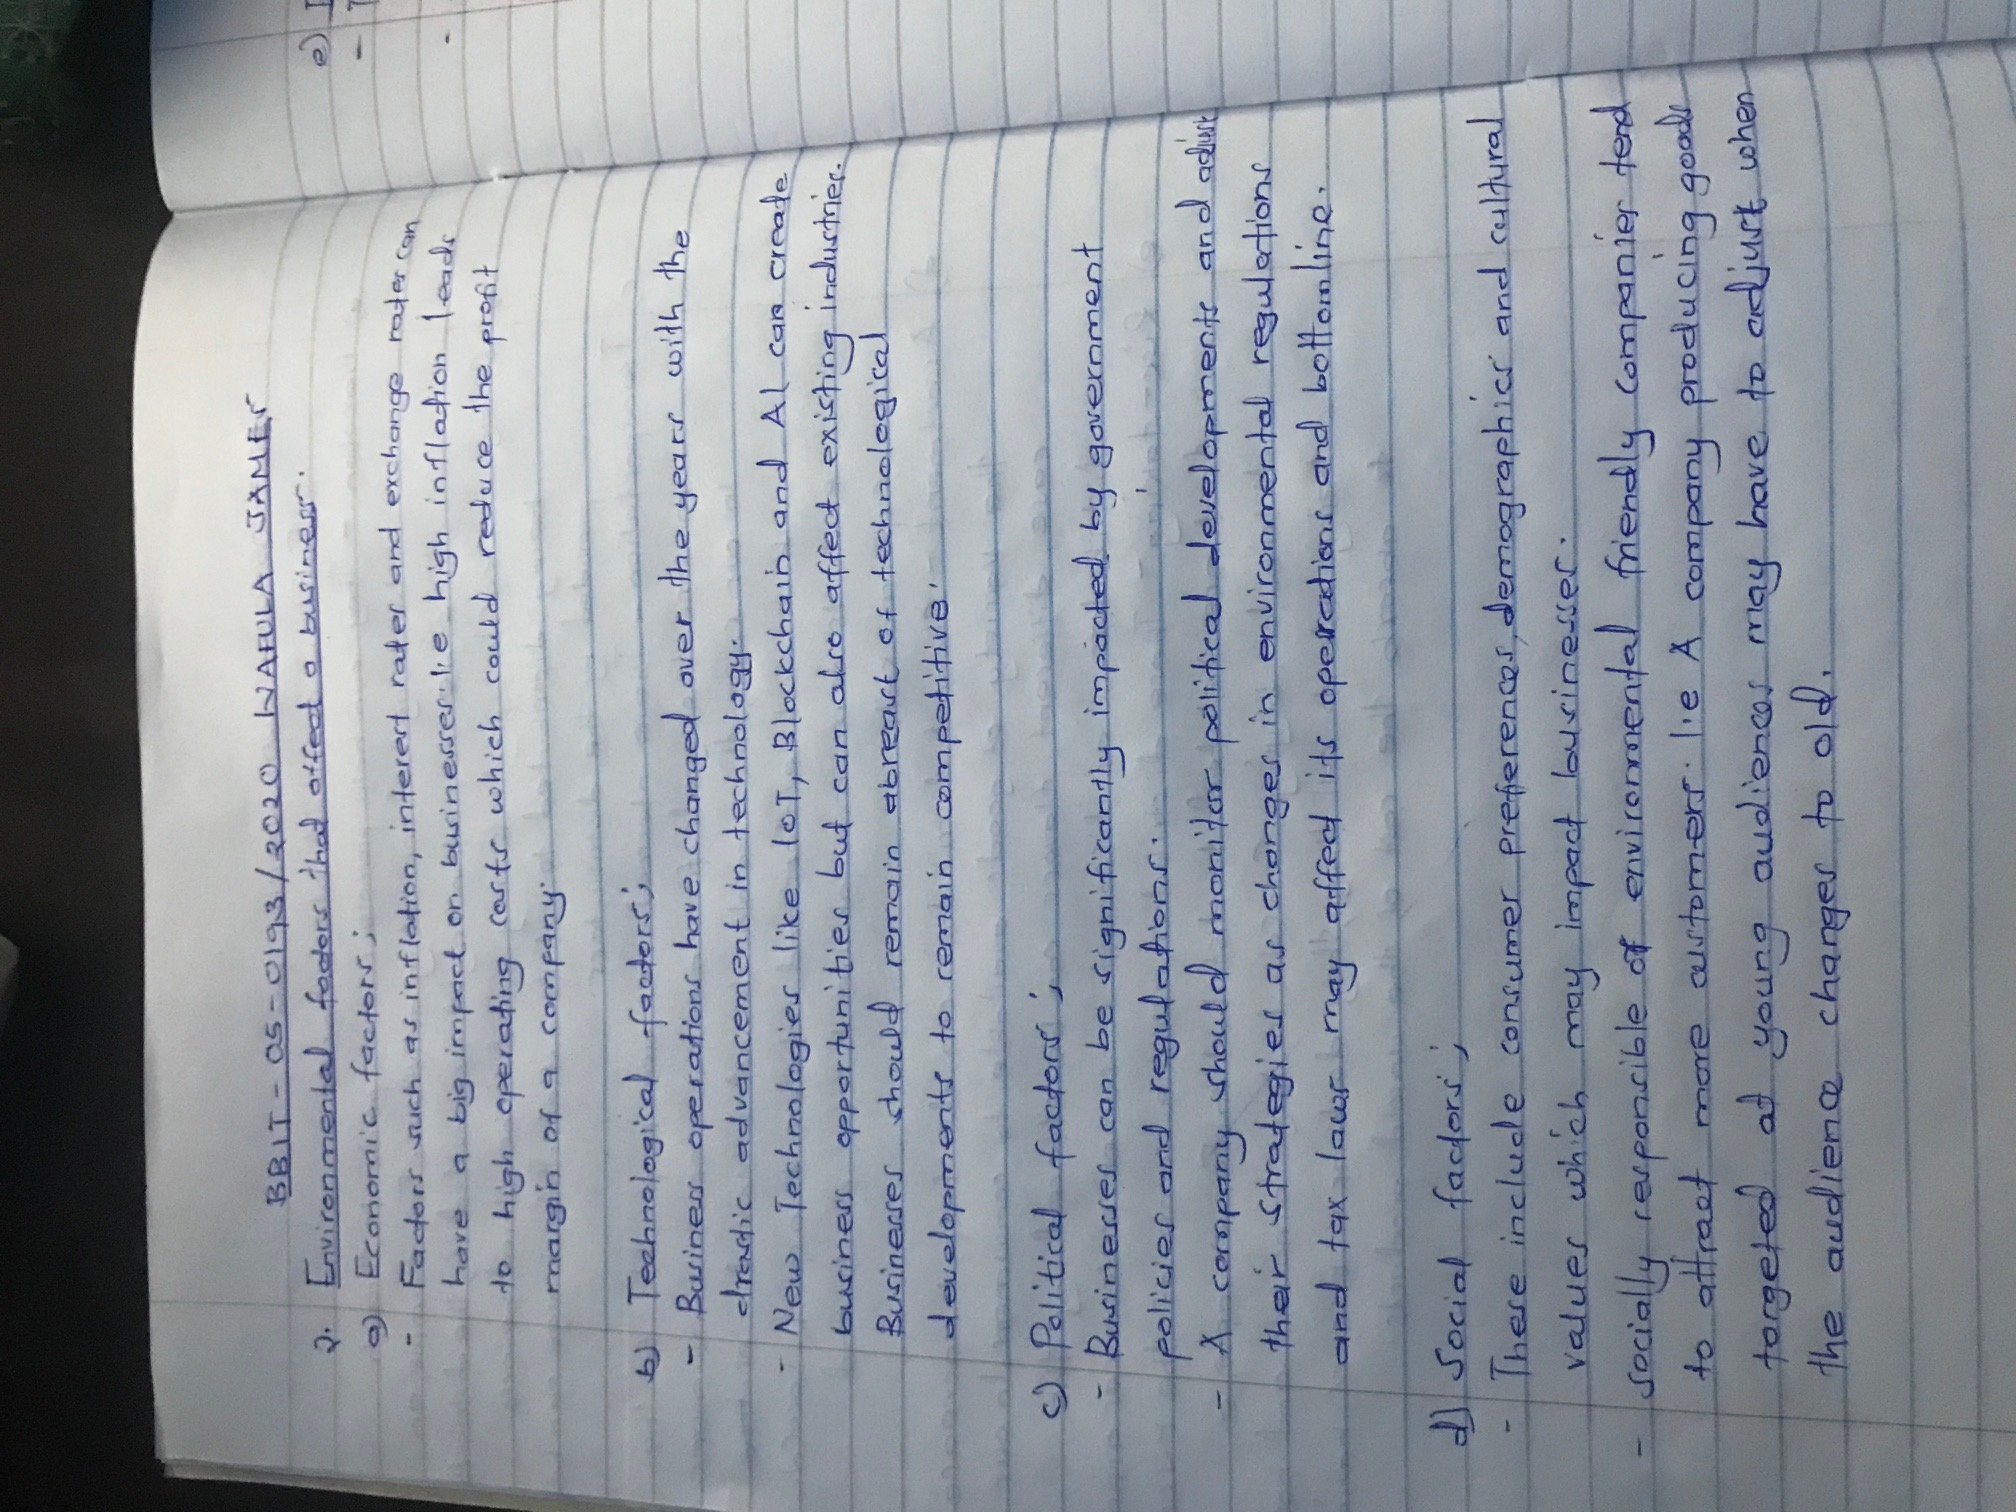 BBIT-05-0193/2020 WAFULA JAMES
2. Environmental factors that affect a business.
a) Economic factors;
- Factors such as inflation, interest rates and exchange rates can
have a big impact on businesses. I.e high inflation leads
to high operating costs which could reduce the profit
margin of a company.
b) Technological factors;
- Business operations have changed over the years with the
drastic advancement in technology.
- New Technologies like IoT, Blockchain and AI can create
business opportunities but can also affect existing industries.
Businesses should remain abreast of technological
developments to remain competitive.
c) Political factors;
- Businesses can be significantly impacted by government
policies and regulations.
- A company should monitor political developments and adjust
their strategies as changes in environmental regulations
and tax laws may affect its operations and bottomline.
d) Social factors;
- These include consumer preferences, demographics and cultural
values which may impact businesses.
- Socially responsible of environmental friendly companies tend
to attract more customers. I.e A company producing goods
targeted at young audiences may have to adjust when
the audience changes to old.
e)
-